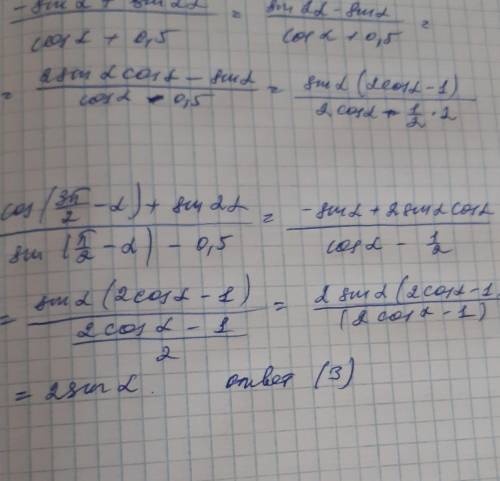 (-sin α + sin 2α)/(cos α + 0,5) = (sin 2α - sin α)/(cos α + 0,5) =
= (2 sin α cos α - sin α)/(cos α - 0,5) = (sin α (2cos α - 1))/(2 cos α - 1/2 · 2)
(cos (3π/2 - α) + sin 2α)/(sin (π/2 - α) - 0,5) = (- sin α + 2 sin α cos α)/(cos α - 1/2)
= (sin α (2 cos α - 1))/((2 cos α - 1)/2) = (2 sin α (2 cos α - 1)/((2 cos α - 1)
= 2 sin α. ответ (3)